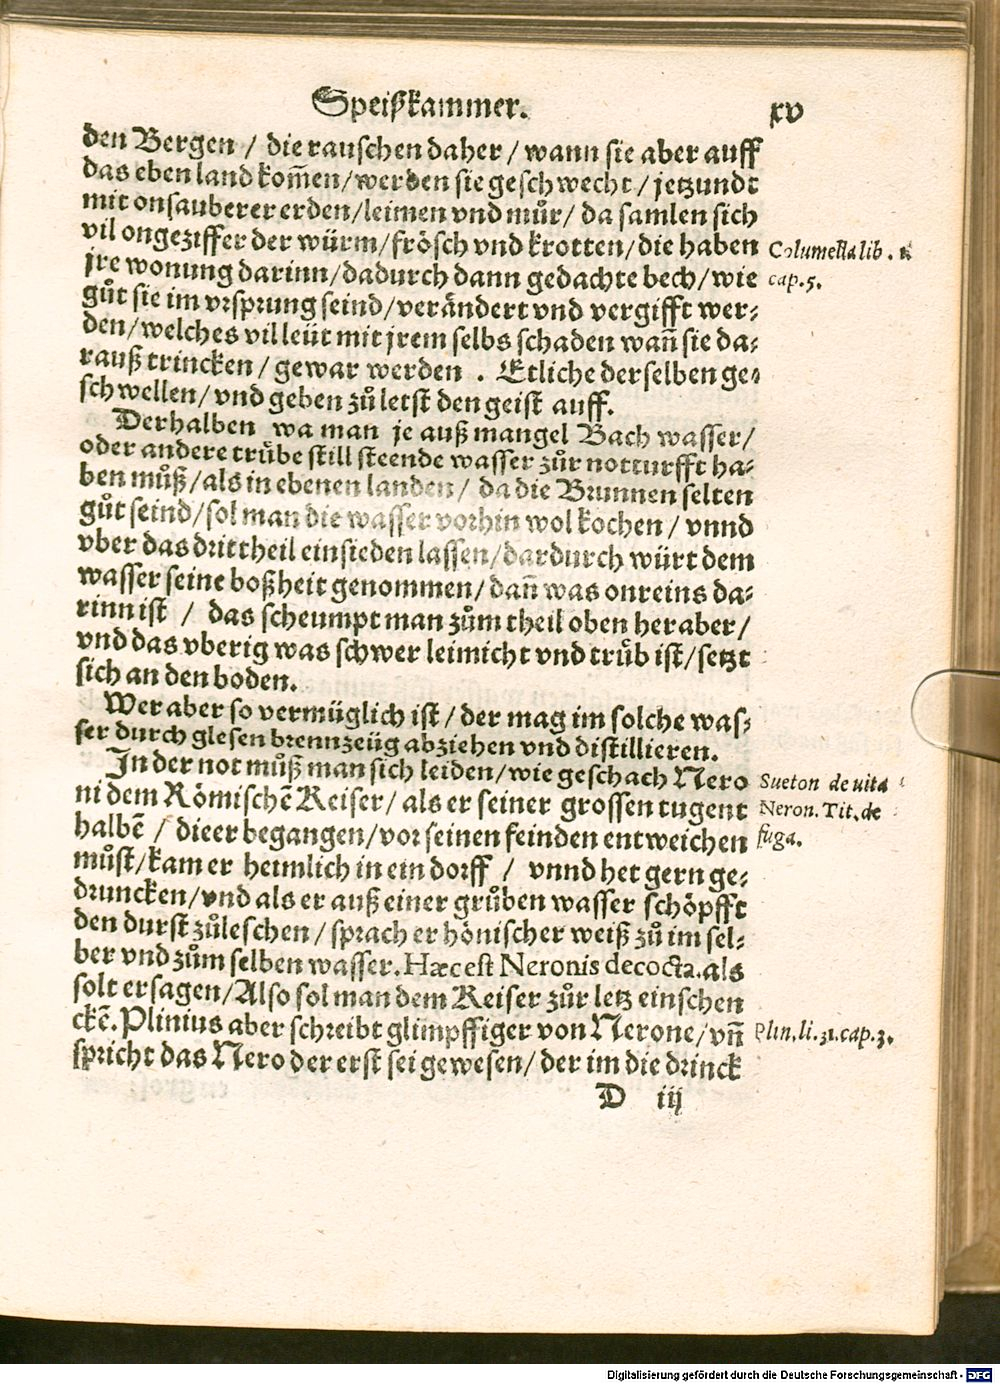 Speißkammer. xv
den Bergen / die rauschen daher / wann sie aber auff
das eben land kom̃en/werden sie geschwecht / jetzundt
mit onsauberer erden/leimen vnd můr/ da samlen sich
vil ongeziffer der würm/frösch vnd krotten/die haben
Columella lib.
jre wonung darinn/dadurch dann gedachte bech/wie
cap.5.
gůt sie im vrsprung seind/verändert vnd vergifft wer-
den/welches vil leüt mit jrem selbs schaden wañ sie da-
rauß trincken / gewar werden . Etliche derselben ge-
schwellen/vnd geben zů letst den geist auff.
Derhalben wa man je auß mangel Bach wasser/
oder andere trübe still steende wasser zůr notturfft ha-
ben můß/als in ebenen landen/ da die Brunnen selten
gůt seind/sol man die wasser vorhin wol kochen / vnnd
vber das drittheil einsieden lassen/dardurch würt dem
wasser seine boßheit genommen/dañ was onreins da-
rinn ist / das scheumpt man zům theil oben heraber/
vnd das vberig was schwer leimicht vnd trüb ist/setzt
sich an den boden.
Wer aber so vermüglich ist / der mag im solche was-
ser durch glesen brennzeüg abziehen vnd distillieren.
In der not můß man sich leiden/wie geschach Nero
Sueton de vita
ni dem Römischẽ Keiser/als er seiner grossen tugent
Neron. Tit. de
halbẽ / die er begangen/vor seinen feinden entweichen
fuga.
můst/kam er heimlich in ein dorff / vnnd het gern ge-
druncken/vnd als er auß einer grůben wasser schöpfft
den durst zůleschen / sprach er hönischer weiß zů im sel-
ber vnd zům selben wasser. Hæc est Neronis decocta. als
solt er sagen/Also sol man dem Keiser zůr letz einschen
ckẽ. Plinius aber schreibt glimpffiger von Nerone/vñ
Plin.li.31.cap.3.
spricht das Nero der erst sei gewesen/der im die drinck
D iij
Digitalisierung gefördert durch die Deutsche Forschungsgemeinschaft - DFG